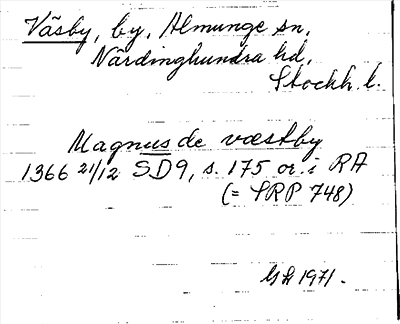 Väsby, by, Almunge sn,
Närdinghundra hd,
Stockh. l.
Magnus de væstby
1366 21/12 SD9, s. 175 or. i RA
(= SRP 748)
GH 1971.